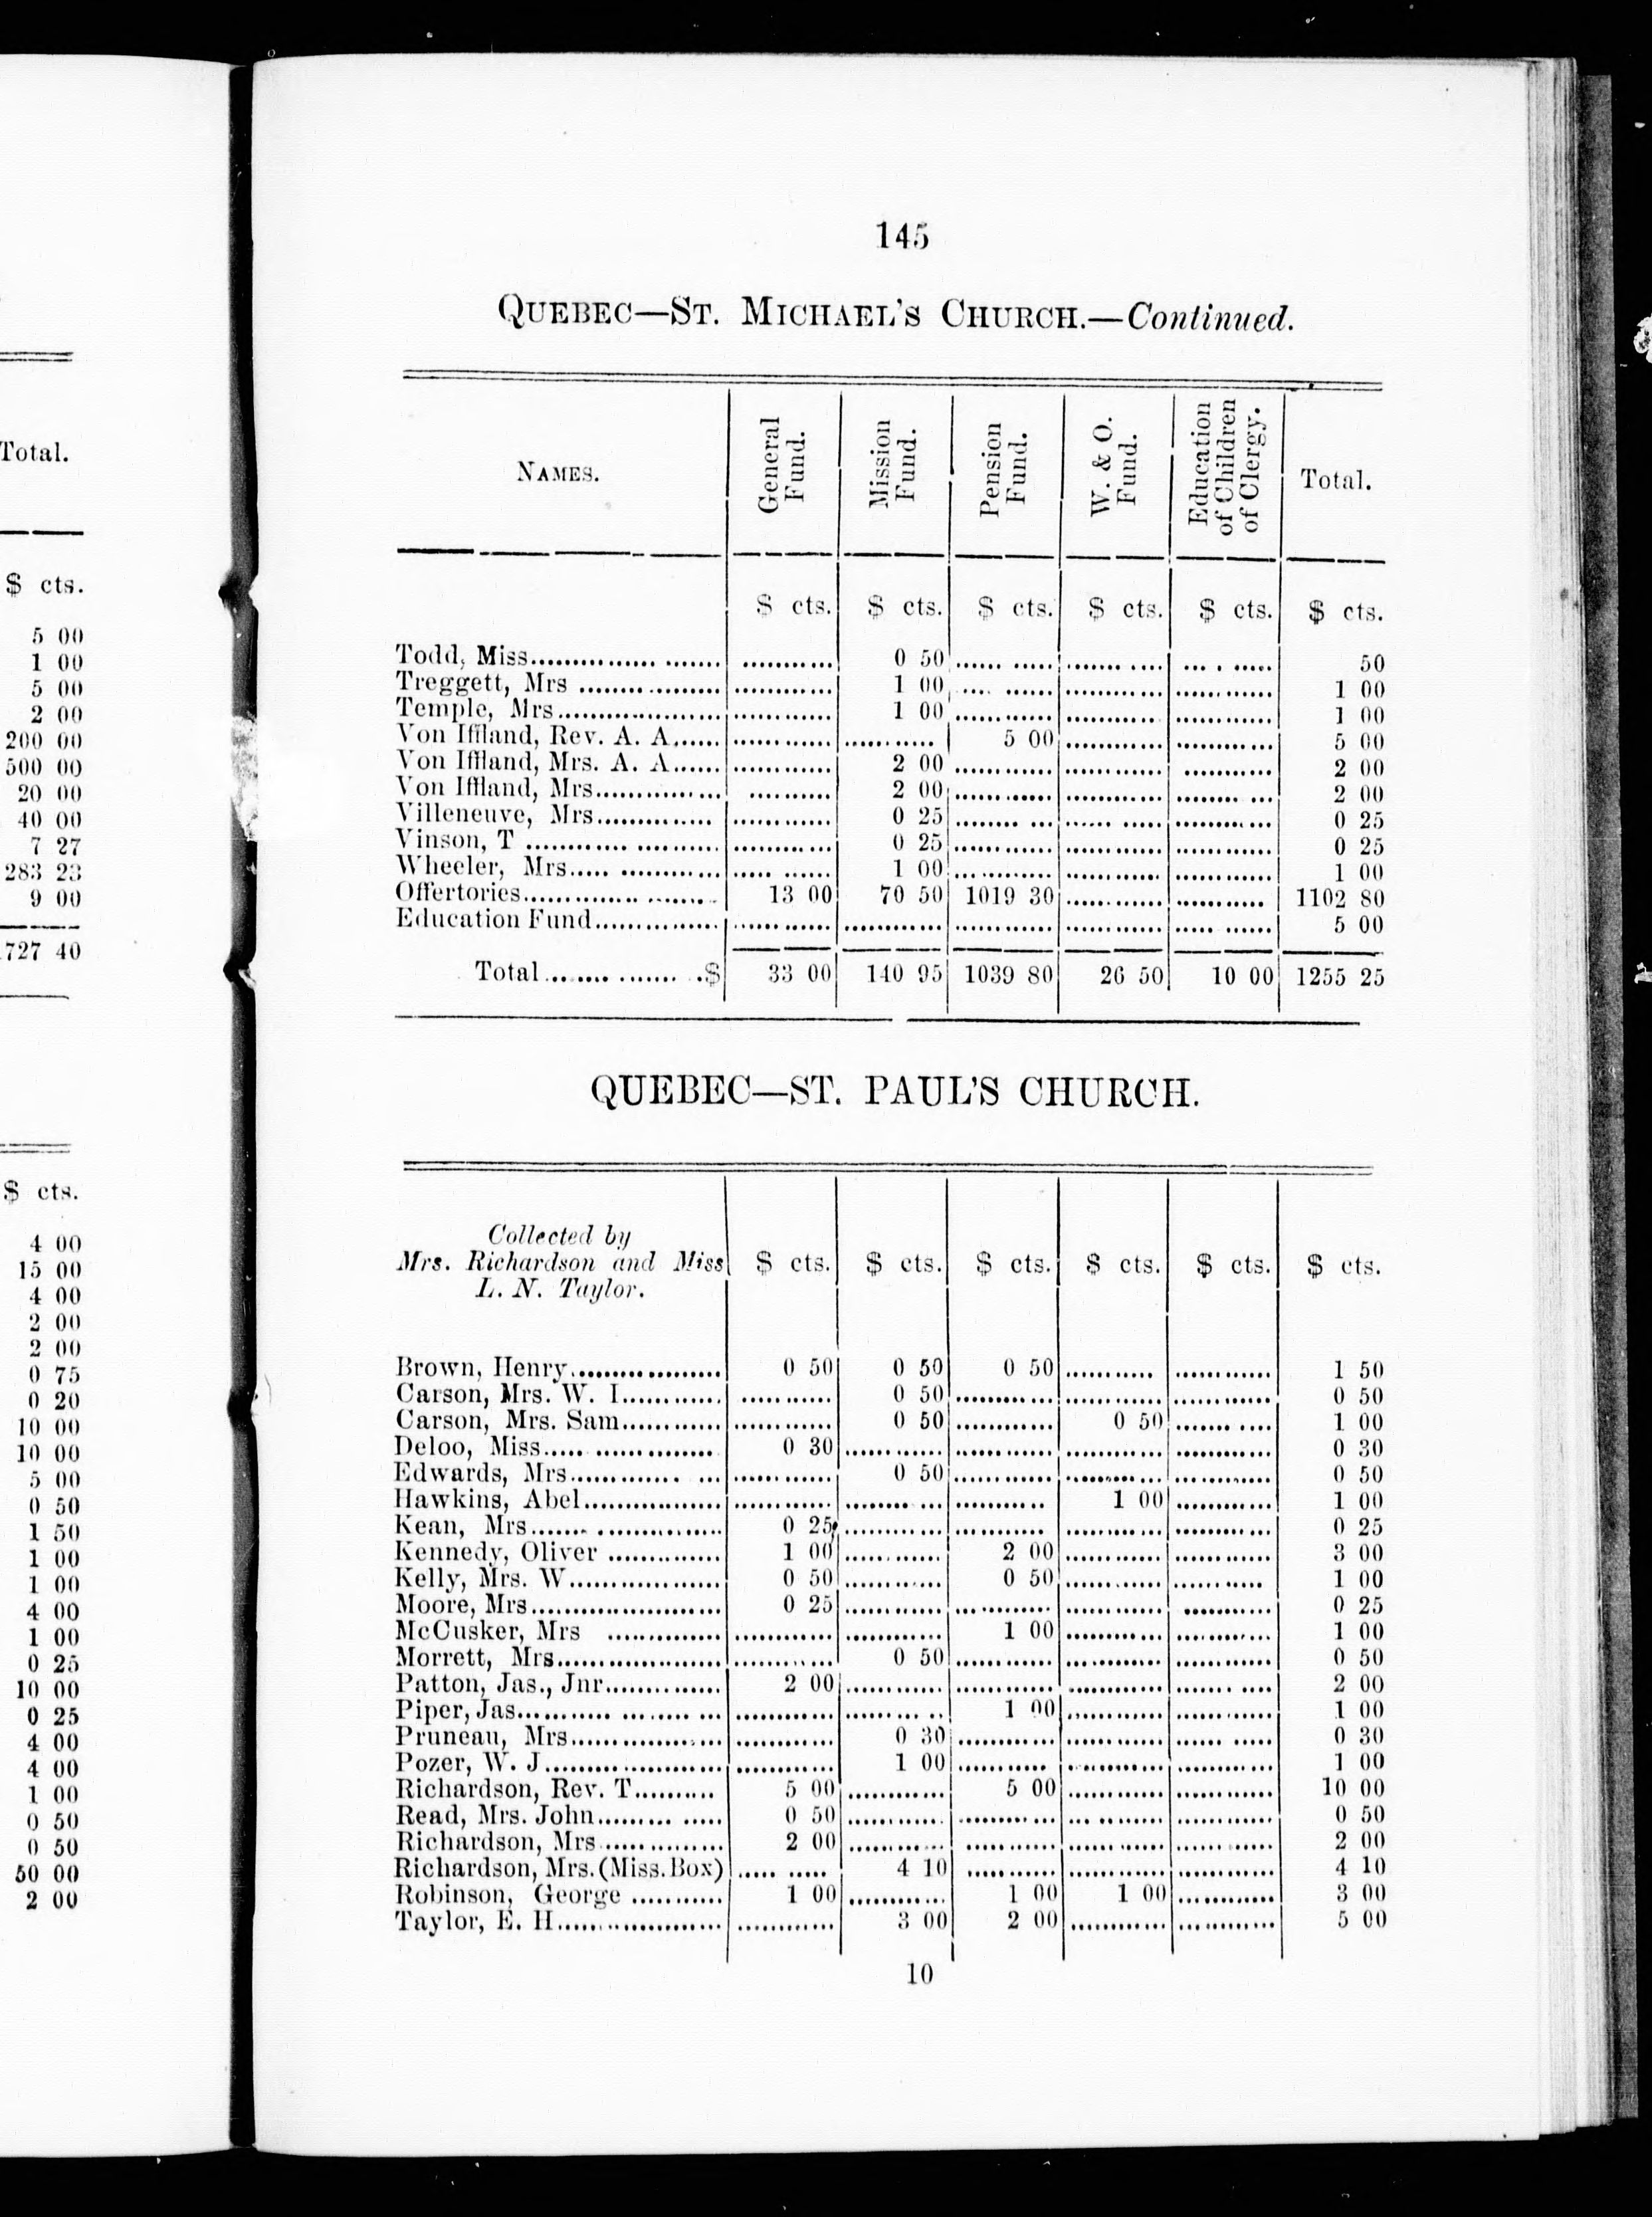 Total.
$ cts.
5 00
1 00
5 00
2 00
200 00
500 00
20 00
40 00
7 27
283 23
9 00
727 40
$ cts.
4 00
15 00
4 00
2 00
2 00
0 75
0 20
10 00
10 00
5 00
0 50
1 50
1 00
1 00
4 00
1 00
0 25
10 00
0 25
4 00
4 00
1 00
0 50
0 50
50 00
2 00
145
QUEBEC—ST. MICHAEL'S CHURCH.—Continued.
NAMES. General Fund. Mission Fund. Pension Fund. W. & O. Fund. Education of Children of Clergy. Total.
$ cts. $ cts. $ cts. $ cts. $ cts. $ cts.
Todd, Miss 0 50 50
Treggett, Mrs 1 00 1 00
Temple, Mrs 1 00 1 00
Von Iffland, Rev. A. A. 5 00 5 00
Von Iffland, Mrs. A. A. 2 00 2 00
Von Iffland, Mrs 2 00 2 00
Villeneuve, Mrs 0 25 0 25
Vinson, T 0 25 0 25
Wheeler, Mrs 1 00 1 00
Offertories 13 00 70 50 1019 30 1102 80
Education Fund 5 00
Total $ 33 00 140 95 1039 80 26 50 10 00 1255 25
QUEBEC—ST. PAUL'S CHURCH.
Collected by
Mrs. Richardson and Miss $ cts. $ cts. $ cts. $ cts. $ cts. $ cts.
L. N. Taylor.
Brown, Henry 0 50 0 50 0 50 1 50
Carson, Mrs. W. I. 0 50 0 50
Carson, Mrs. Sam 0 50 0 50 1 00
Deloo, Miss 0 30 0 30
Edwards, Mrs 0 50 0 50
Hawkins, Abel 1 00 1 00
Kean, Mrs 0 25 0 25
Kennedy, Oliver 1 00 2 00 3 00
Kelly, Mrs. W 0 50 0 50 1 00
Moore, Mrs 0 25 0 25
McCusker, Mrs 1 00 1 00
Morrett, Mrs 0 50 0 50
Patton, Jas., Jnr 2 00 2 00
Piper, Jas 1 00 1 00
Pruneau, Mrs 0 30 0 30
Pozer, W. J 1 00 1 00
Richardson, Rev. T 5 00 5 00 10 00
Read, Mrs. John 0 50 0 50
Richardson, Mrs 2 00 2 00
Richardson, Mrs. (Miss. Box) 4 10 4 10
Robinson, George 1 00 1 00 1 00 3 00
Taylor, E. H 3 00 2 00 5 00
10